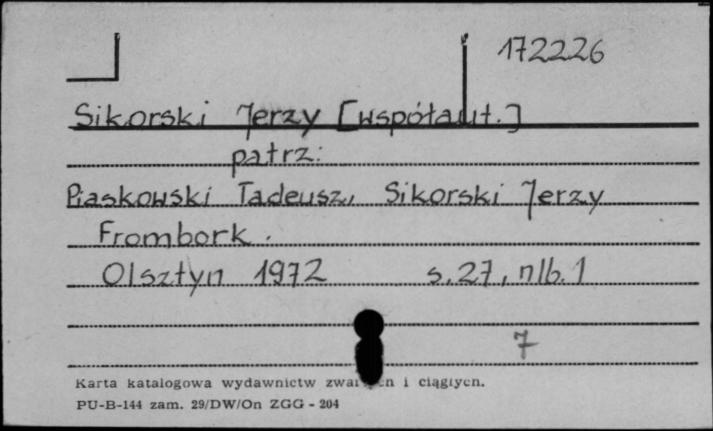 172226
Sikorski Jerzy [współaut.]
patrz:
Piaskowski Tadeusz, Sikorski Jerzy
Frombork.
Olsztyn 1972 s. 27, nlb. 1
7
Karta katalogowa wydawnictw i ciągłych.
PU-B-144 zam. 29/DW/On ZGG - 204